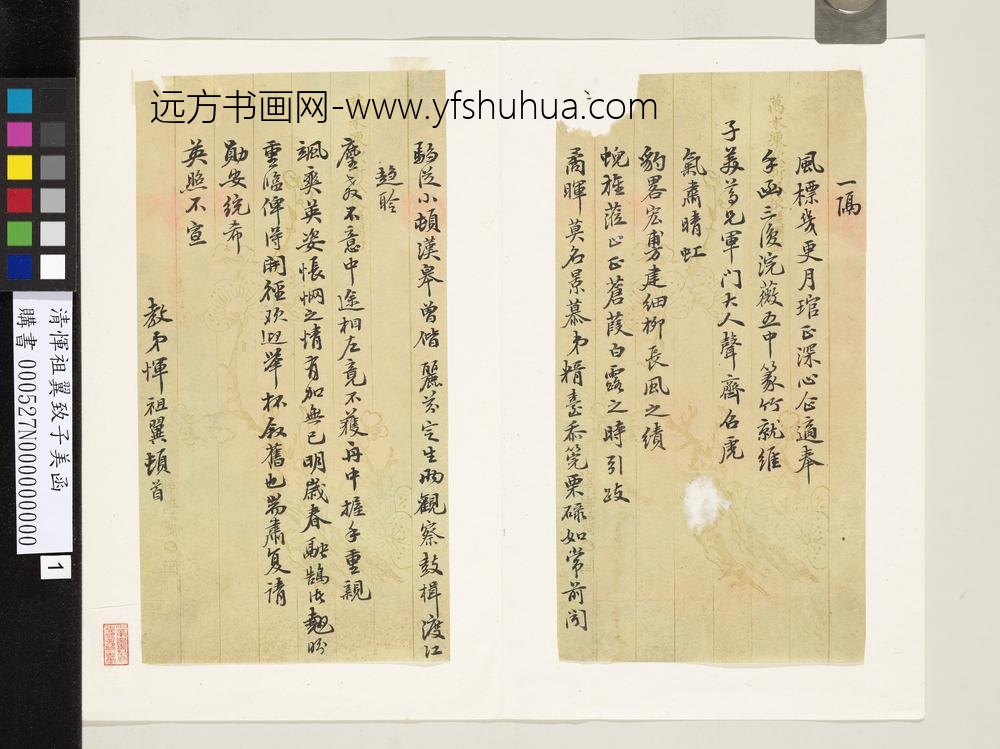 远方书画网-www.yfshuhua.com
一隔
風標幾更月琯正深心企適奉
手函三復浣薇五中篆竹就維
子美尊兄軍门大人聲齊召虎
氣肅晴虹
豹畧宏旉建細柳長風之績
蜺旌蒞止正蒼葭白露之時引跂
矞暉莫名景慕弟糈臺忝筦栗碌如常前聞
騶從小頓漢皋曾偕麗芬定生兩觀察鼓楫渡江
趨聆
麈教不意中途相左竟不獲再申握手重親
颯爽英姿悵惘之情有加無已明歲春融鵠候翹盼
重臨俾得開徑歡迎舉杯敘舊也耑肅复请
勛安統希
英照不宣
教弟惲祖翼頓首
清惲祖翼致子美函
購書 000527N000000000
1